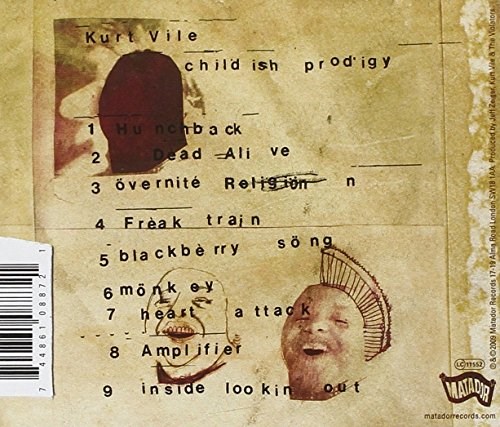 Kurt Vile
childish prodigy
1 Hunchback
2 Dead Alive
3 övernité Religiön n
4 Frèak train
5 blackbèrry söng
6 mönkey
7 heart attack
8 Amplifier
9 inside lookin out
7 44861 08872 1
LC 11552
MATADOR
matadorrecords.com
℗&©2009 Matador Records 17-19 Alma Road London SW18 1AA. Produced by Jeff Zeigler, Kurt Vile & The Violators